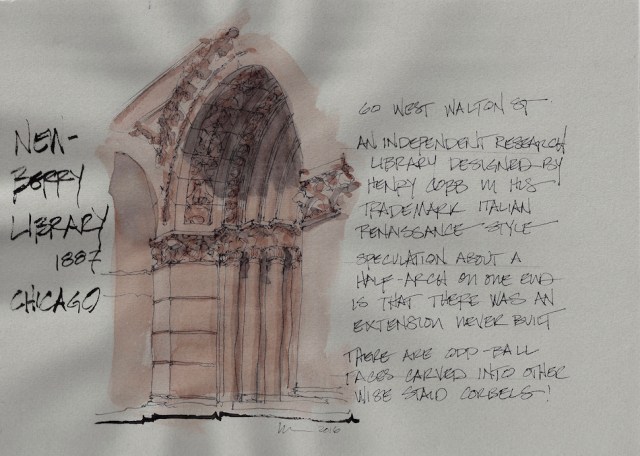 NEW-
BERRY
LIBRARY
1887
CHICAGO
60 WEST WALTON ST.
AN INDEPENDENT RESEARCH
LIBRARY DESIGNED BY
HENRY COBB IN HIS
TRADEMARK ITALIAN
RENAISSANCE STYLE
SPECULATION ABOUT A
HALF-ARCH ON ONE END
IS THAT THERE WAS AN
EXTENSION NEVER BUILT
THERE ARE ODD-BALL
FACES CARVED INTO OTHER
WISE STAID CORBELS!
2016